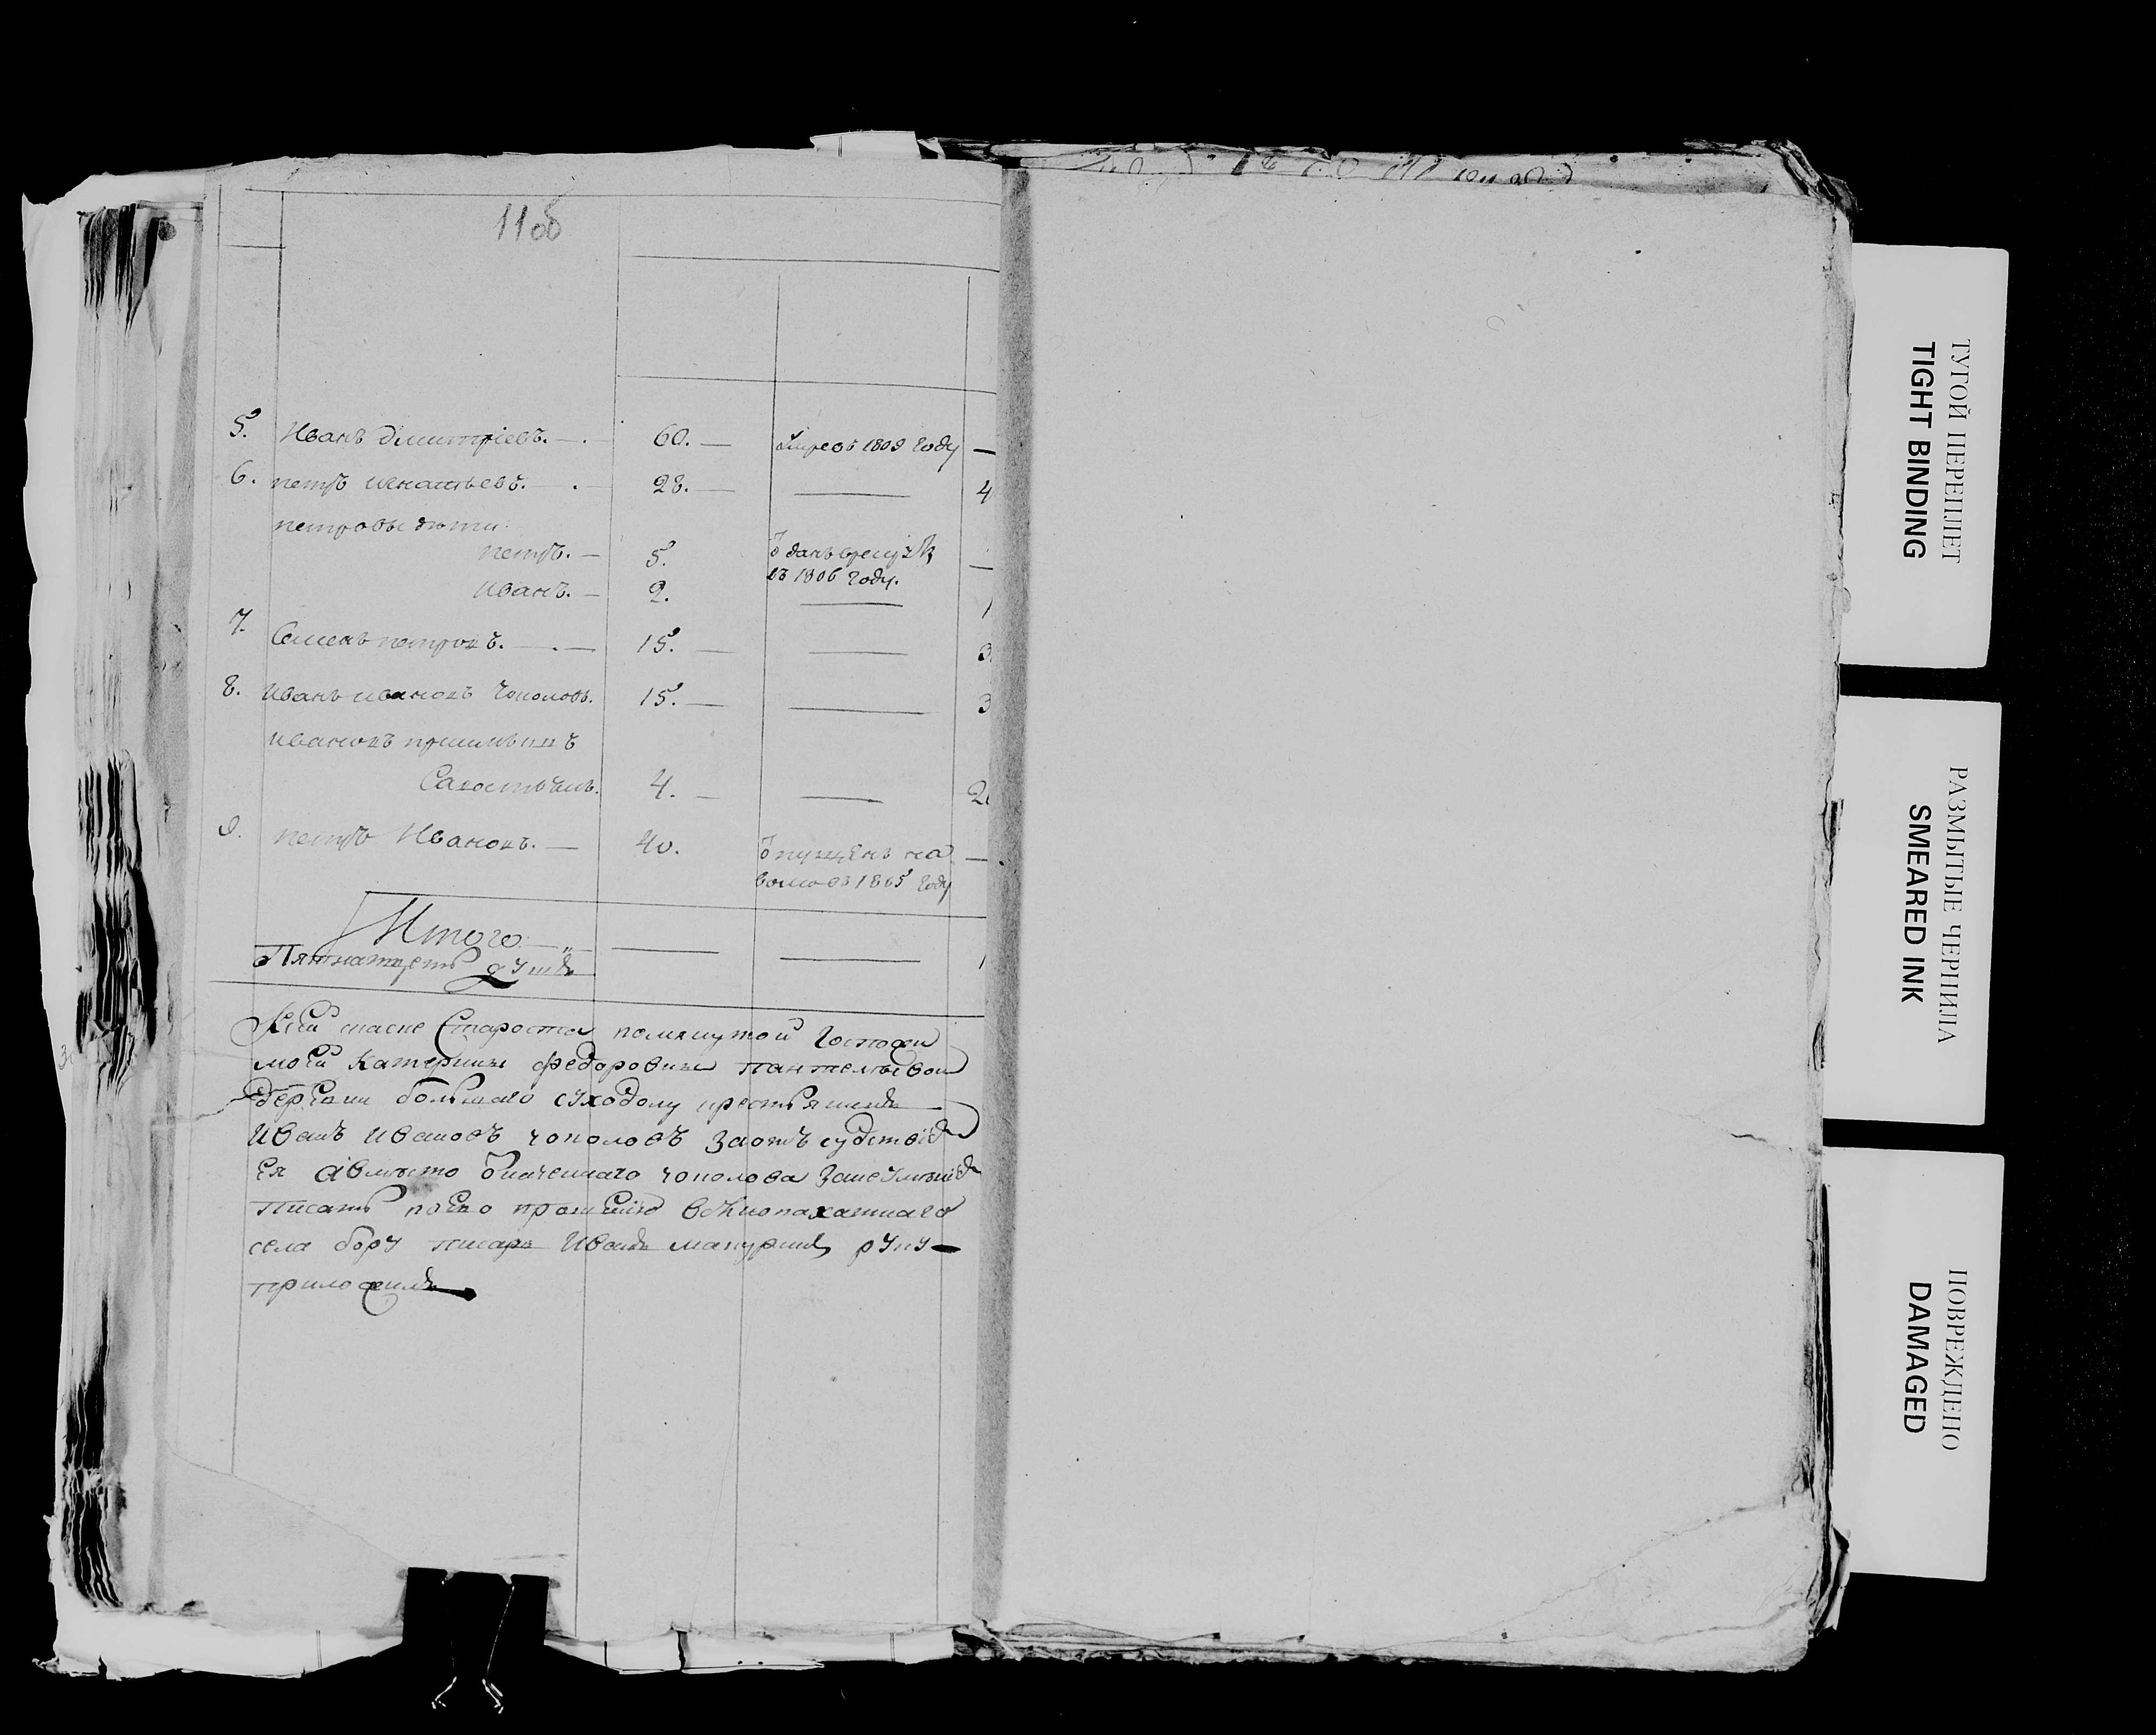 11об
5. Иванъ Дмитріевъ. — 60. — Умре въ 1809 году —
6. петръ игнатьевъ. — 28. — — 4
петровы дети
петръ. — 5. Отданъ в рекруты —
въ 1806 году.
Иванъ. — 2. — 1
7. Семенъ петровъ. — 15. — — 3
8. Иванъ ивановъ Чополовъ. 15. — — 3
ивановъ
4. — — 2
9. петръ Ивановъ. — 40. Отпущенъ на —
волю въ 1805 году
Итого — — —
Пятнатцеть душъ 1
Ксей скаске Староста помянутой Госпожи
моей Катерины Федоровны Пантелеевой
деревни большаго суходолу крестьянинъ
Иванъ Ивановъ чополовъ за отъсудствіемъ
ея а вместо означеннаго чополова за неумениемъ
писать по ево прошению
села бору писарь Иванъ руку
приложилъ
ТУГОЙ ПЕРЕПЛЕТ
TIGHT BINDING
РАЗМЫТЫЕ ЧЕРНИЛА
SMEARED INK
ПОВРЕЖДЕНО
DAMAGED